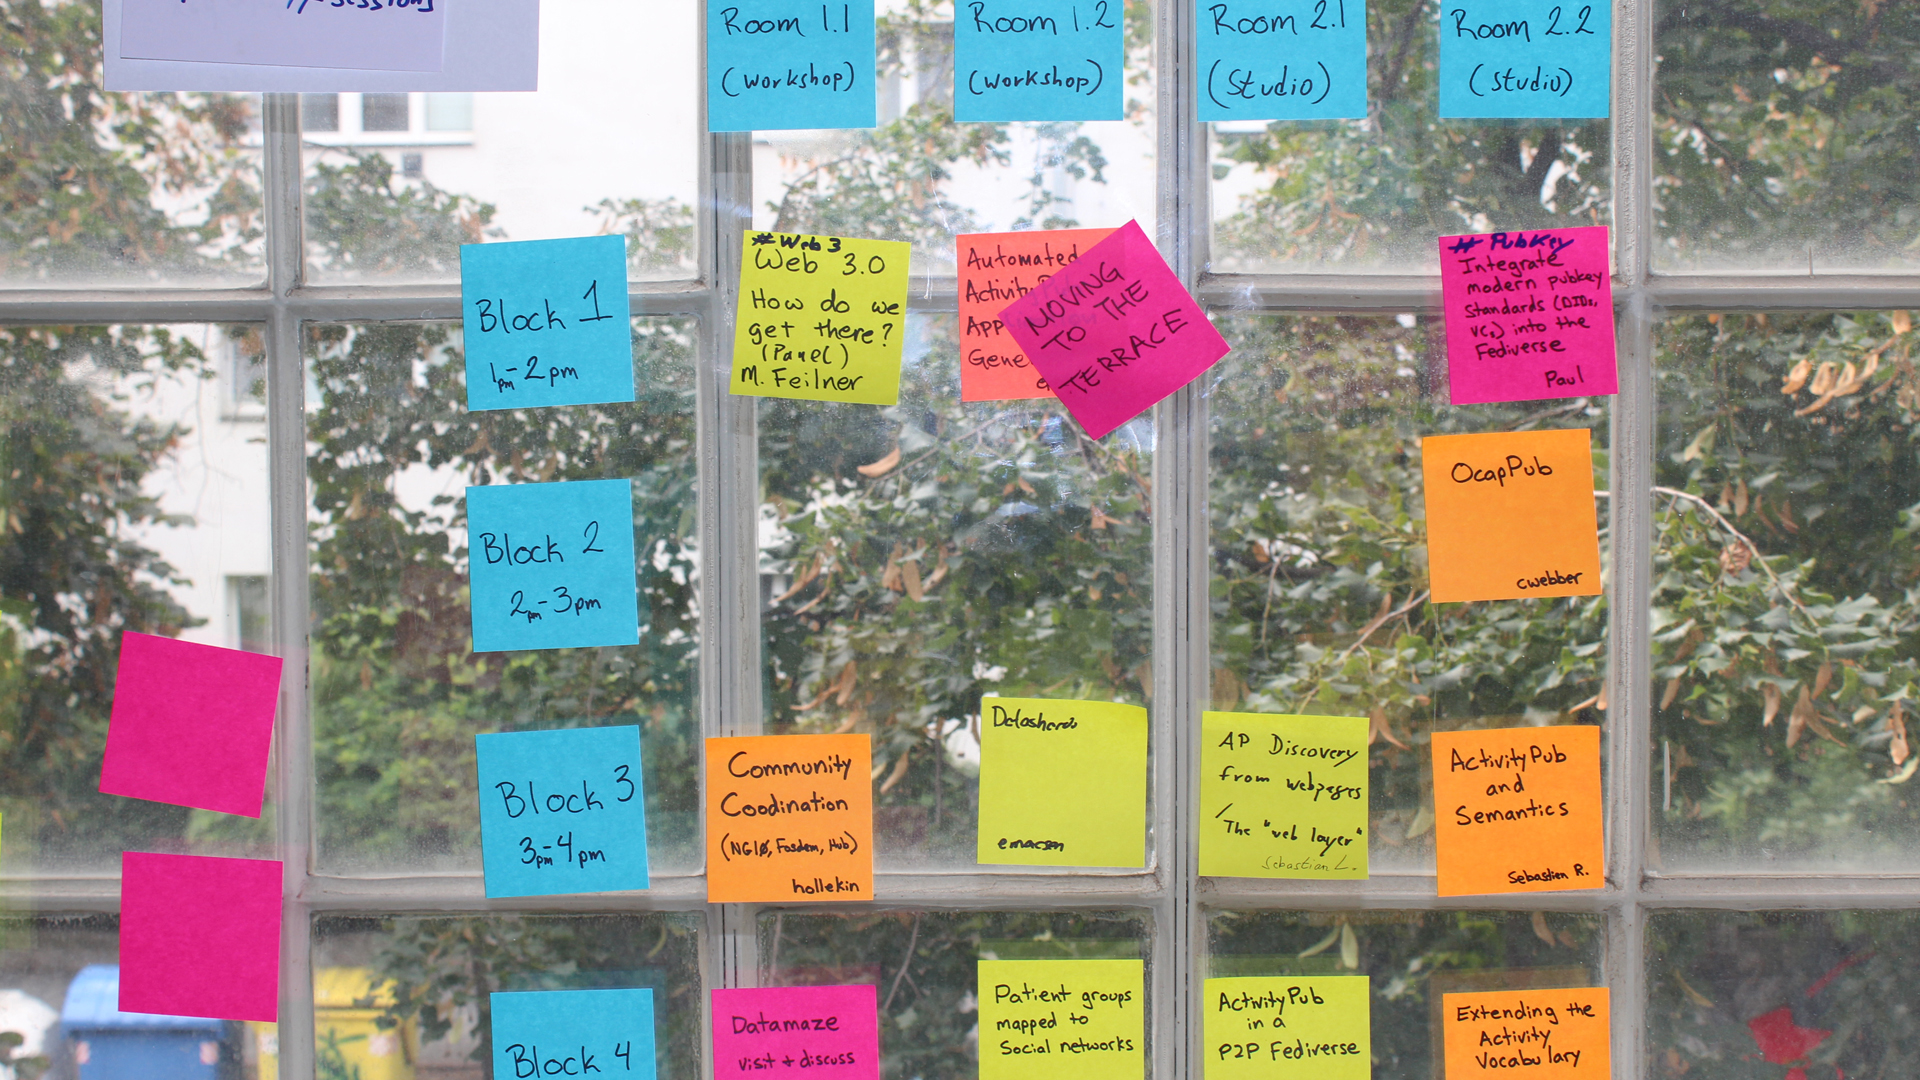 sessions
Room 1.1
(workshop)
Room 1.2
(workshop)
Room 2.1
(Studio)
Room 2.2
(Studio)
Block 1
1pm-2pm
# Web 3
Web 3.0
How do we
get there?
(Panel)
M. Feilner
Automated
Activity
App
Gene
MOVING
TO THE
TERRACE
# PubKey
Integrate
modern pubkey
Standards (DIDs,
VCs) into the
Fediverse
Paul
Block 2
2pm-3pm
OcapPub
cwebber
Block 3
3pm-4pm
Community
Coodination
(NGI0, Fosdem, Hub)
hollekin
Datashards
emacsen
AP Discovery
from webpages
/The "web layer"
Sebastian L.
ActivityPub
and
Semantics
Sebastien R.
Block 4
Datamaze
visit + discuss
Patient groups
mapped to
Social networks
ActivityPub
in a
P2P Fediverse
Extending the
Activity
Vocabulary